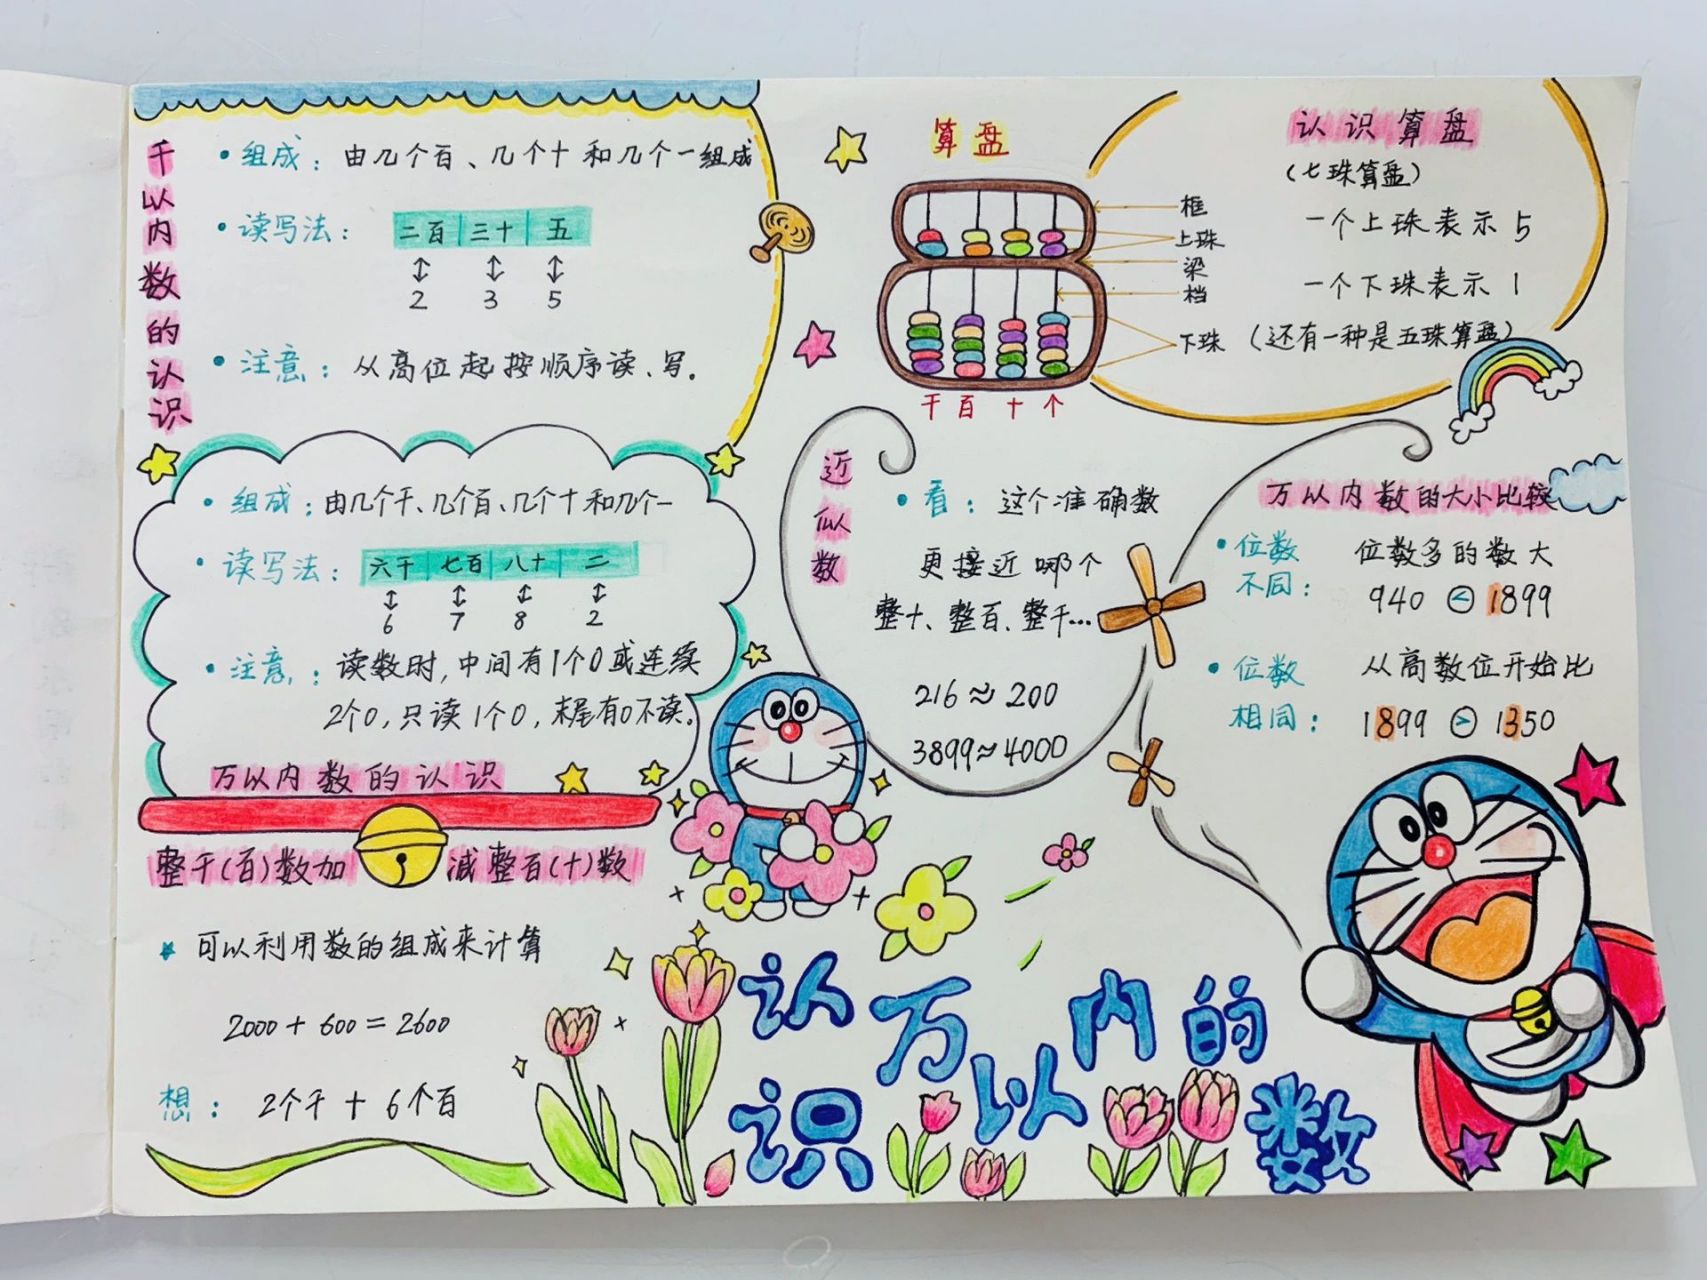 千以内数的认识
• 组成：由几个百、几个十和几个一组成
• 读写法：
二百 三十 五
↕ ↕ ↕
2 3 5
• 注意：从高位起按顺序读、写。
• 组成：由几个千、几个百、几个十和几个一
• 读写法：
六千 七百 八十 二
↕ ↕ ↕ ↕
6 7 8 2
• 注意：读数时,中间有1个0或连续
2个0,只读1个0,末尾有0不读。
万以内数的认识
整千(百)数加减整百(十)数
★ 可以利用数的组成来计算
2000+600=2600
想：2个千+6个百
算盘
框
上珠
梁
档
下珠
千百十个
认识算盘
(七珠算盘)
一个上珠表示5
一个下珠表示1
(还有一种是五珠算盘)
近似数
• 看：这个准确数
更接近哪个
整十、整百、整千…
216≈200
3899≈4000
万以内数的大小比较
• 位数不同：位数多的数大
940<1899
• 位数相同：从高数位开始比
1899>1350
认识万以内的数